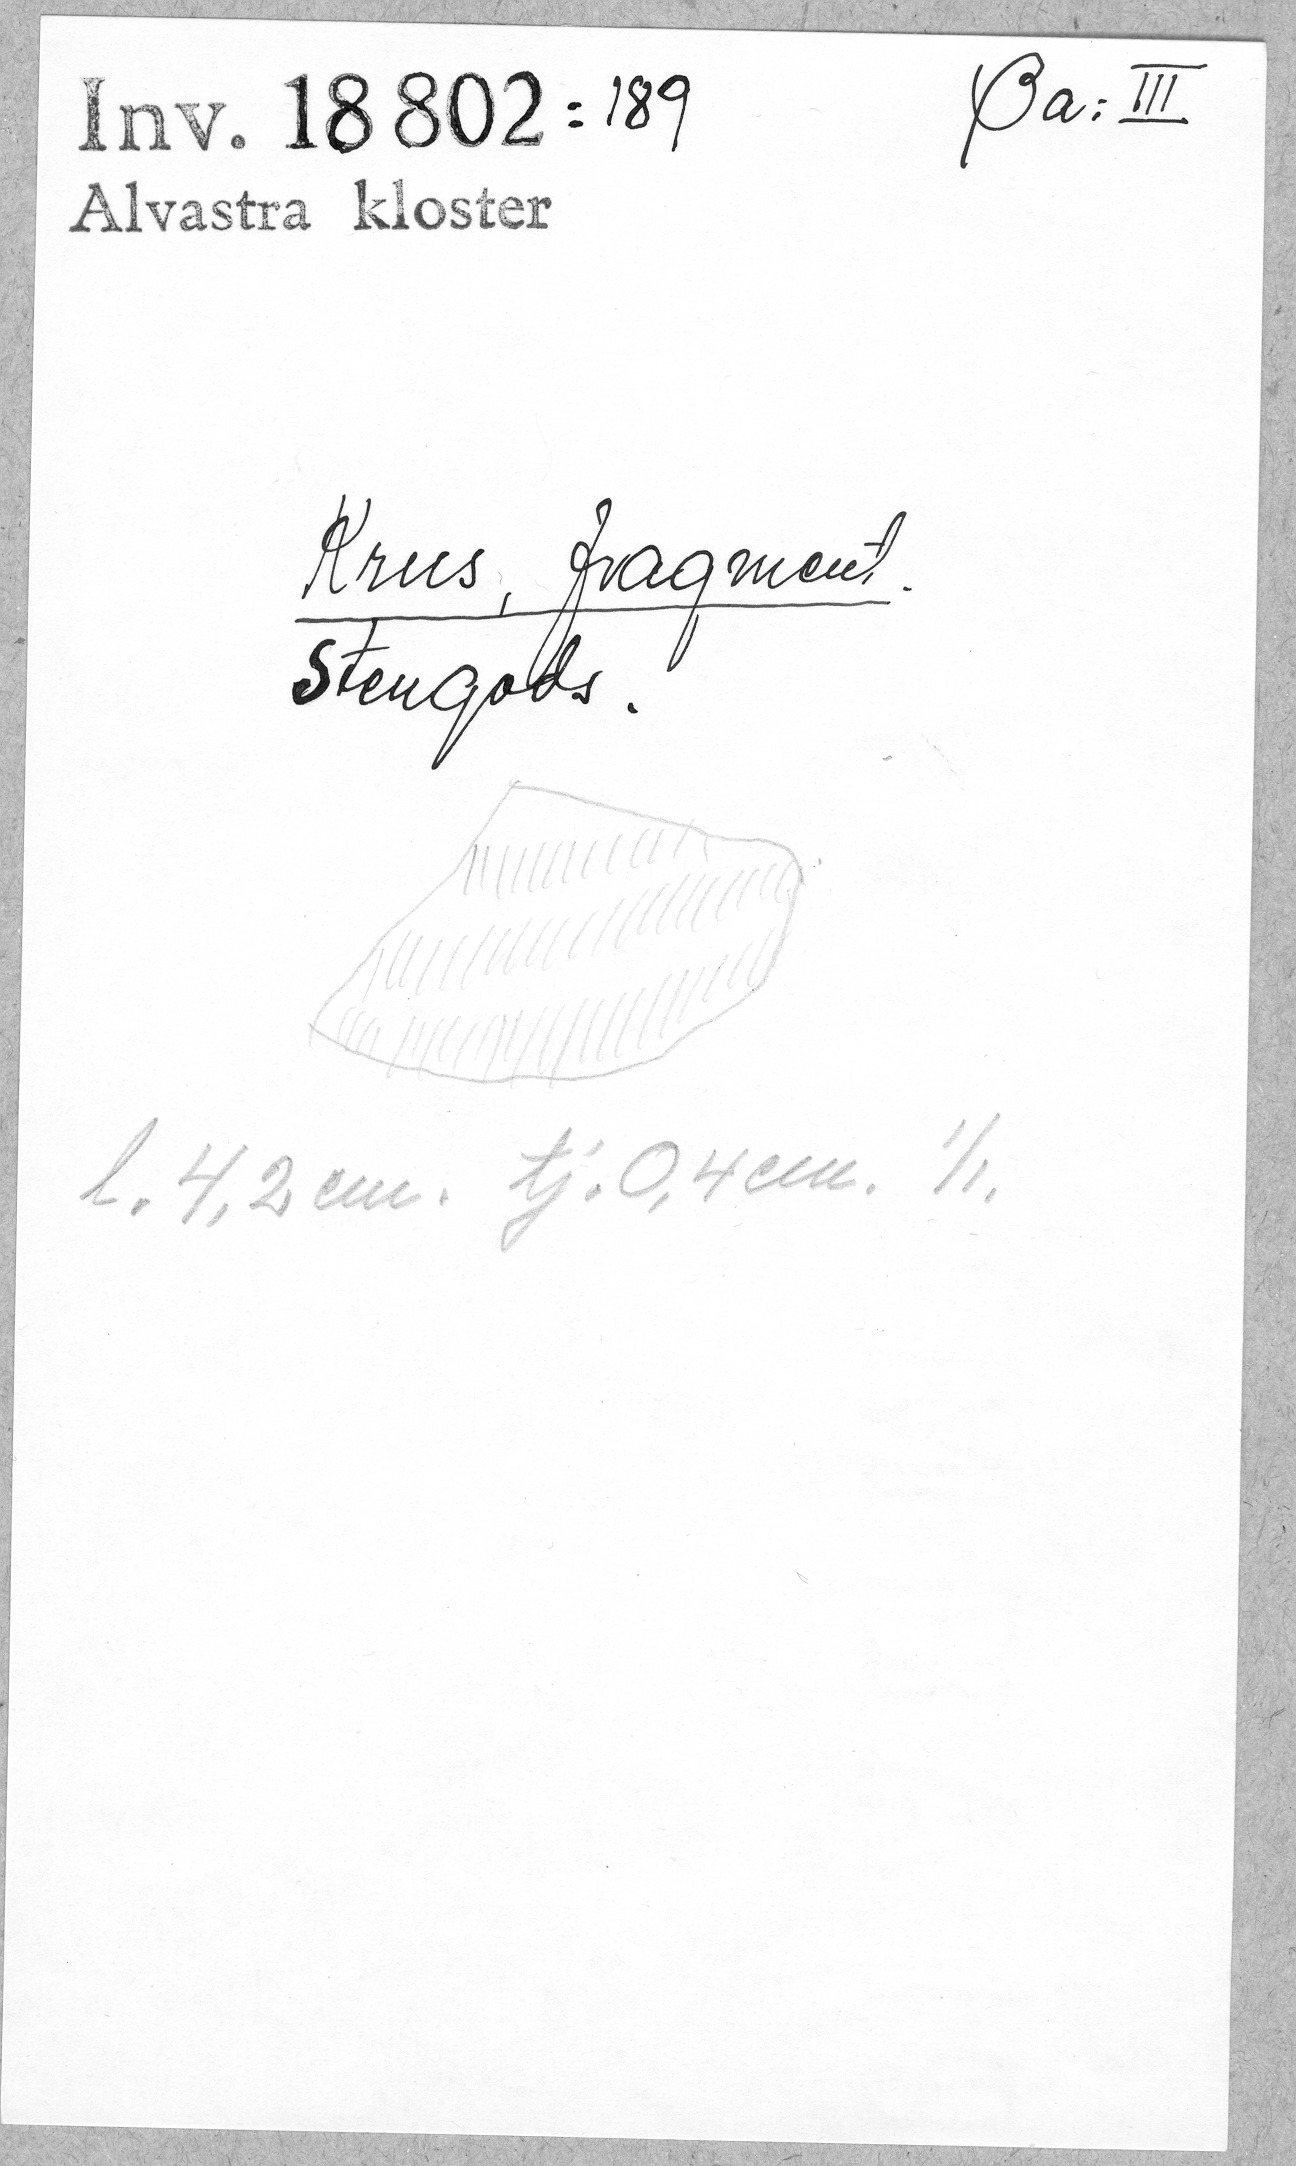 Inv. 18 802:189
Ba: III
Alvastra kloster
Krus, fragment.
Stengods.
l. 4,2 cm. tj. 0,4 cm. 1/1.